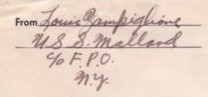 From Louis Zampiglione
U S S. Mallard
c/o F.P.O.
N.Y.